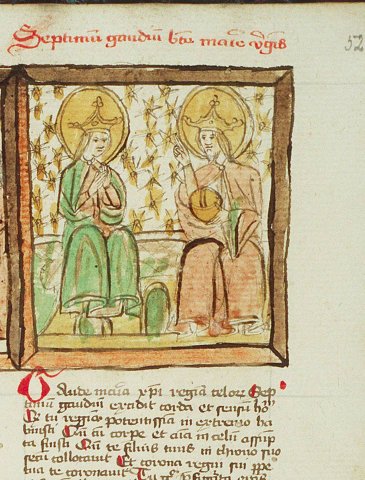 Septimum gaudium bte marie vginis
52
Gaude maria xpi regia celor Sep
timum gaudium excedit corda et sensum ho
Ce tu regia potentissima in extremo ha
buisti Cum cum corpe et aia in celum assup
ta fuisti Cum te filius tuus in throno suo
secum collocauit Et corona regni sui ppe
tua te coronauit